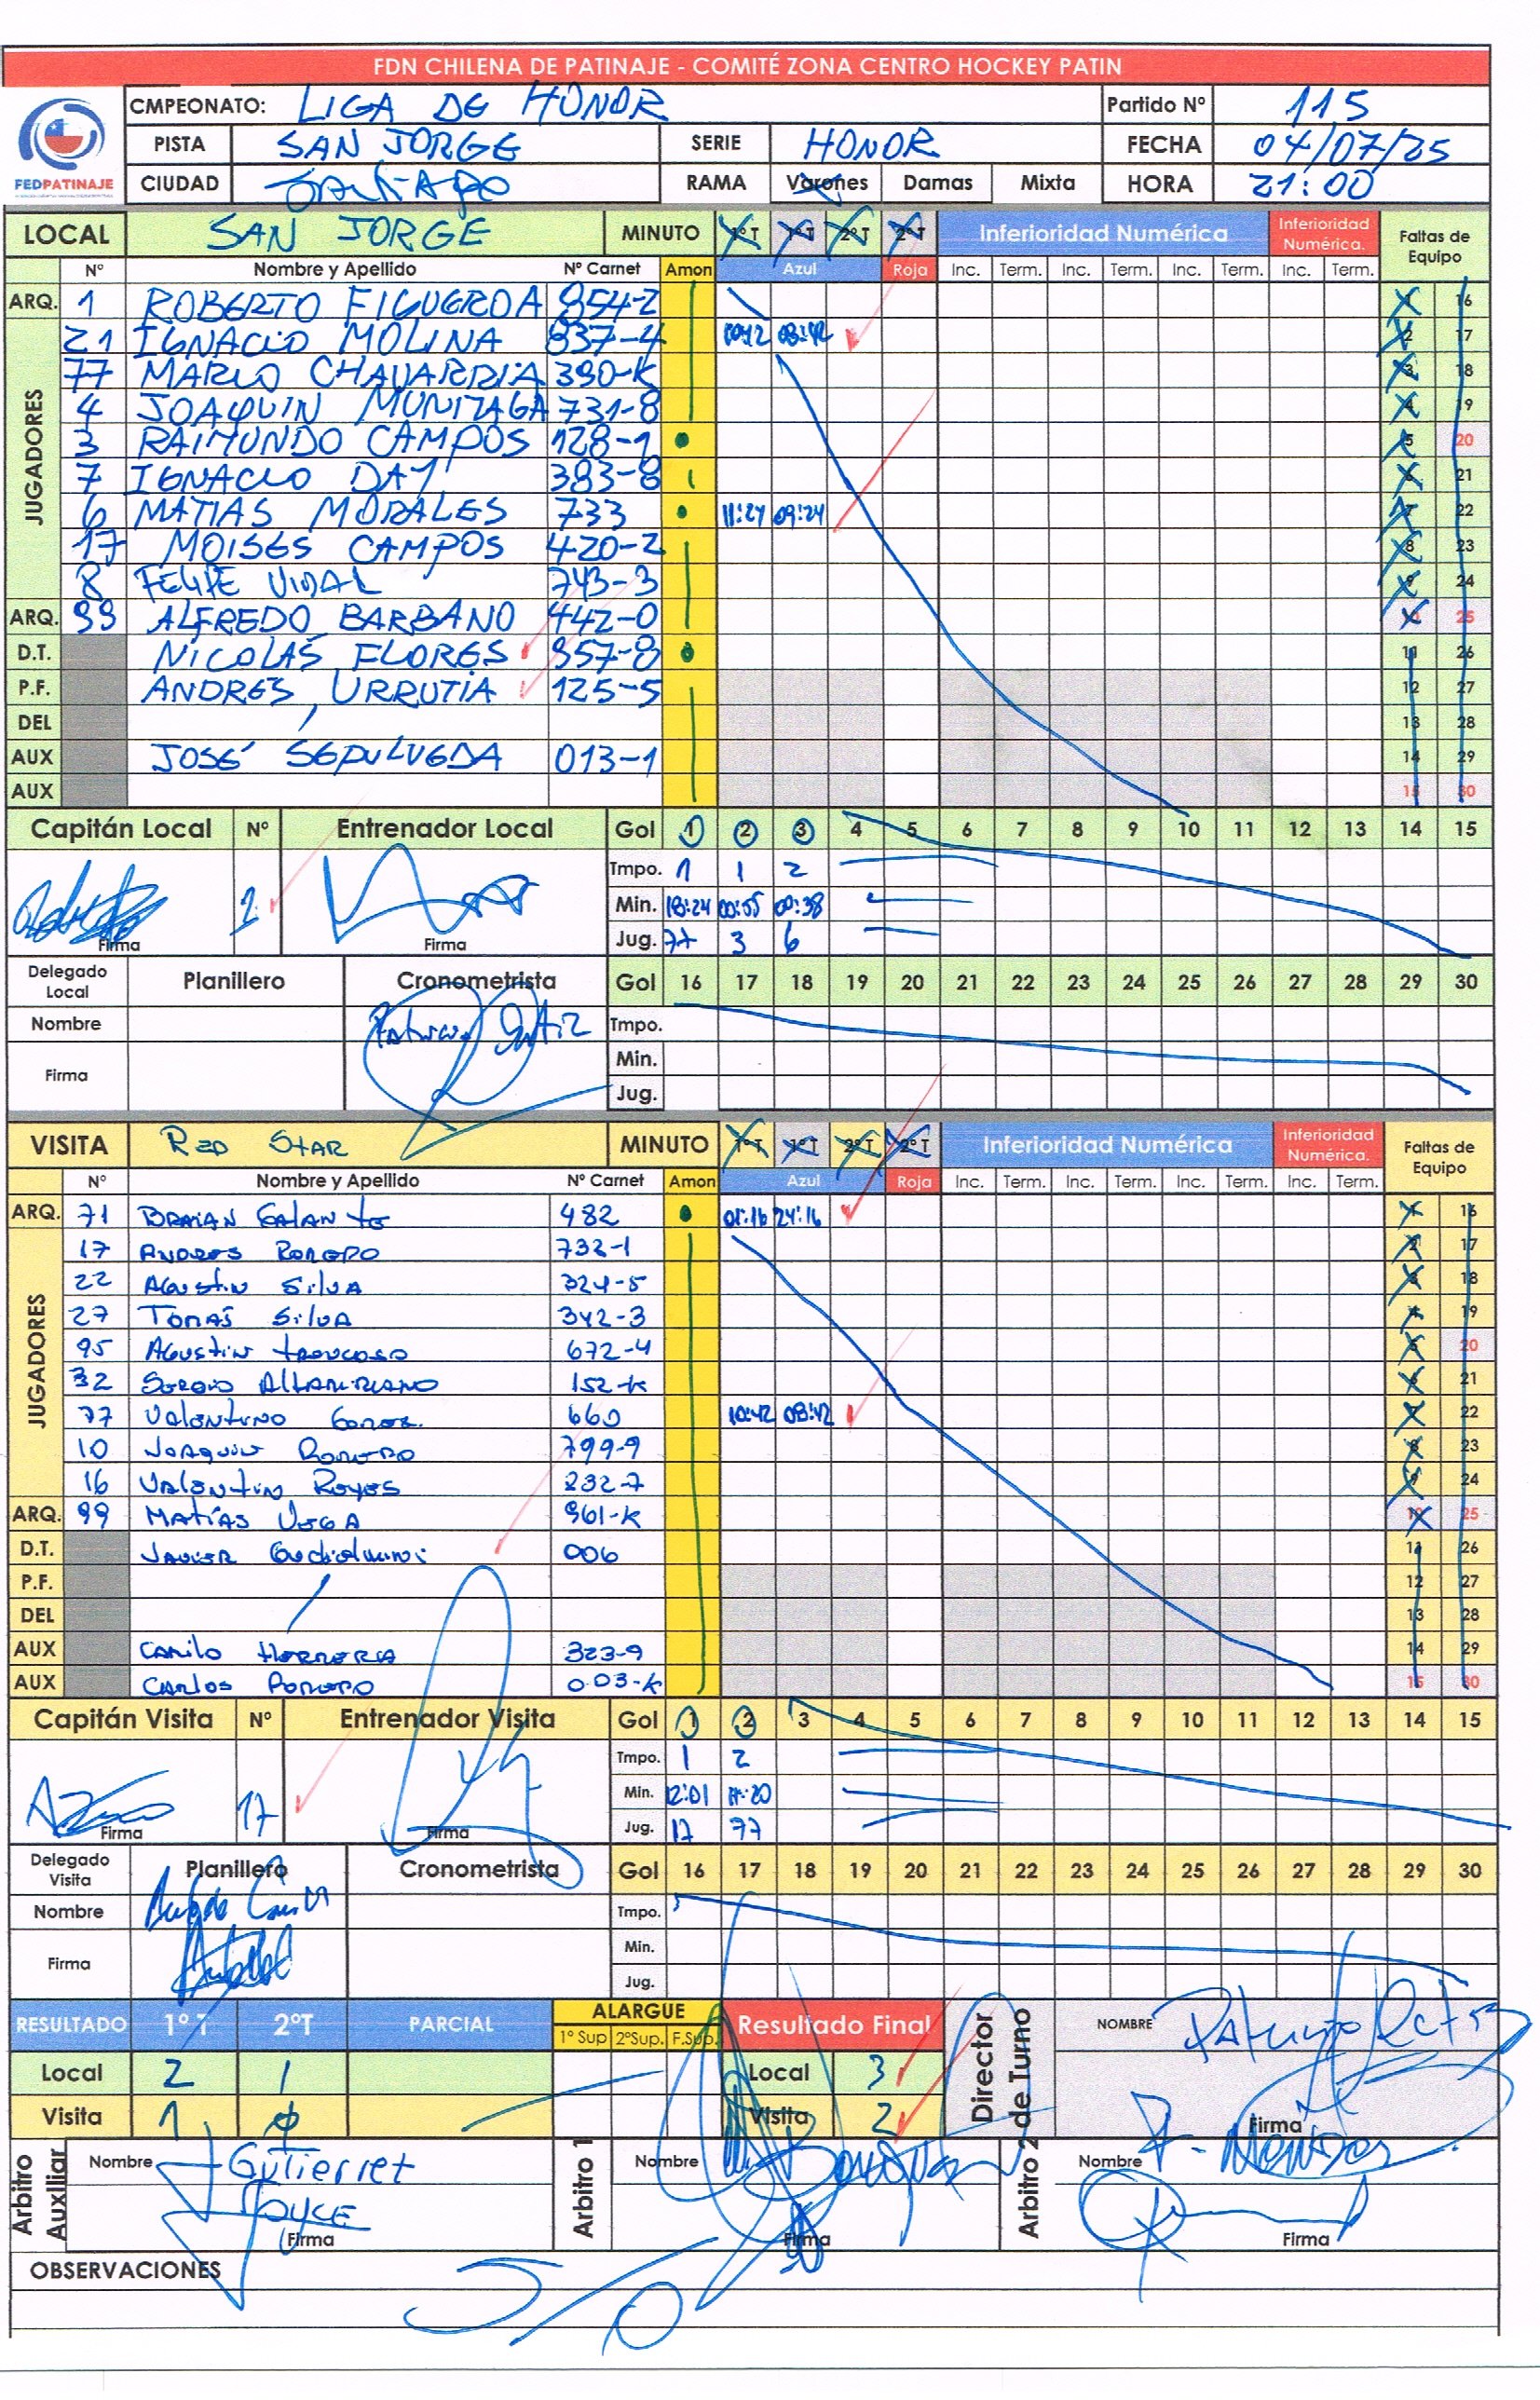 FDN CHILENA DE PATINAJE - COMITÉ ZONA CENTRO HOCKEY PATIN
CMPEONATO: LIGA DE HONOR Partido Nº 115
PISTA SAN JORGE SERIE HONOR FECHA 04/07/25
FEDPATINAJE CIUDAD SANTIAGO RAMA Varones Damas Mixta HORA 21:00
LOCAL SAN JORGE MINUTO 1ºT 1ºT 2ºT 2ºT Inferioridad Numérica Inferioridad Numérica. Faltas de Equipo
Nº Nombre y Apellido Nº Carnet Amon Azul Roja Inc. Term. Inc. Term. Inc. Term. Inc. Term.
ARQ. 1 ROBERTO FIGUEROA 854-2 1 16
JUGADORES
21 IGNACIO MOLINA 837-4 10:42 08:42 2 17
77 MARIO CHAVARRIA 390-K 3 18
4 JOAQUIN MUNIZAGA 731-8 4 19
3 RAIMUNDO CAMPOS 128-1 5 20
7 IGNACIO DAY 383-8 6 21
6 MATIAS MORALES 733 11:24 09:24 7 22
17 MOISES CAMPOS 420-2 8 23
8 FELIPE VIDAL 743-3 9 24
ARQ. 99 ALFREDO BARBANO 442-0 10 25
D.T. NICOLAS FLORES 957-8 11 26
P.F. ANDRES URRUTIA 125-5 12 27
DEL 13 28
AUX JOSÉ SEPULVEDA 013-1 14 29
AUX 15 30
Capitán Local Nº Entrenador Local Gol 1 2 3 4 5 6 7 8 9 10 11 12 13 14 15
Tmpo. 1 1 2
1 Min. 18:24 00:55 00:38
Firma Firma Jug. 77 3 6
Delegado Local Planillero Cronometrista Gol 16 17 18 19 20 21 22 23 24 25 26 27 28 29 30
Nombre Tmpo.
Min.
Firma
Jug.
VISITA RED STAR MINUTO 1ºT 1ºT 2ºT 2ºT Inferioridad Numérica Inferioridad Numérica. Faltas de Equipo
Nº Nombre y Apellido Nº Carnet Amon Azul Roja Inc. Term. Inc. Term. Inc. Term. Inc. Term.
ARQ. 71 BRAIAN GALANTE 482 01:16 24:16 1 16
JUGADORES
17 ANDRES ROMERO 732-1 2 17
22 AGUSTIN SILVA 324-5 3 18
27 TOMÁS SILVA 342-3 4 19
95 AGUSTIN TRONCOSO 672-4 5 20
32 SERGIO ALTAMIRANO 152-K 6 21
77 VALENTINO 660 10:42 08:42 7 22
10 JOAQUIN ROMERO 799-9 8 23
16 VALENTIN REYES 232-7 9 24
ARQ. 99 MATÍAS VEGA 961-K 10 25
D.T. JAVIER 006 11 26
P.F. 12 27
DEL 13 28
AUX CAMILO HERRERA 323-9 14 29
AUX CARLOS ROMERO 003-K 15 30
Capitán Visita Nº Entrenador Visita Gol 1 2 3 4 5 6 7 8 9 10 11 12 13 14 15
Tmpo. 1 2
17 Min. 12:01 11:20
Firma Firma Jug. 17 77
Delegado Visita Planillero Cronometrista Gol 16 17 18 19 20 21 22 23 24 25 26 27 28 29 30
Nombre Tmpo.
Min.
Firma
Jug.
RESULTADO 1ºT 2ºT PARCIAL ALARGUE 1º Sup 2ºSup. F.Sup. Resultado Final Director de Turno NOMBRE
Local 2 1 Local 3
Visita 1 ϕ Visita 2 Firma
Arbitro Auxiliar Nombre Gutierrez Arbitro 1 Nombre Arbitro 2 Nombre
JOYCE
Firma Firma Firma
OBSERVACIONES